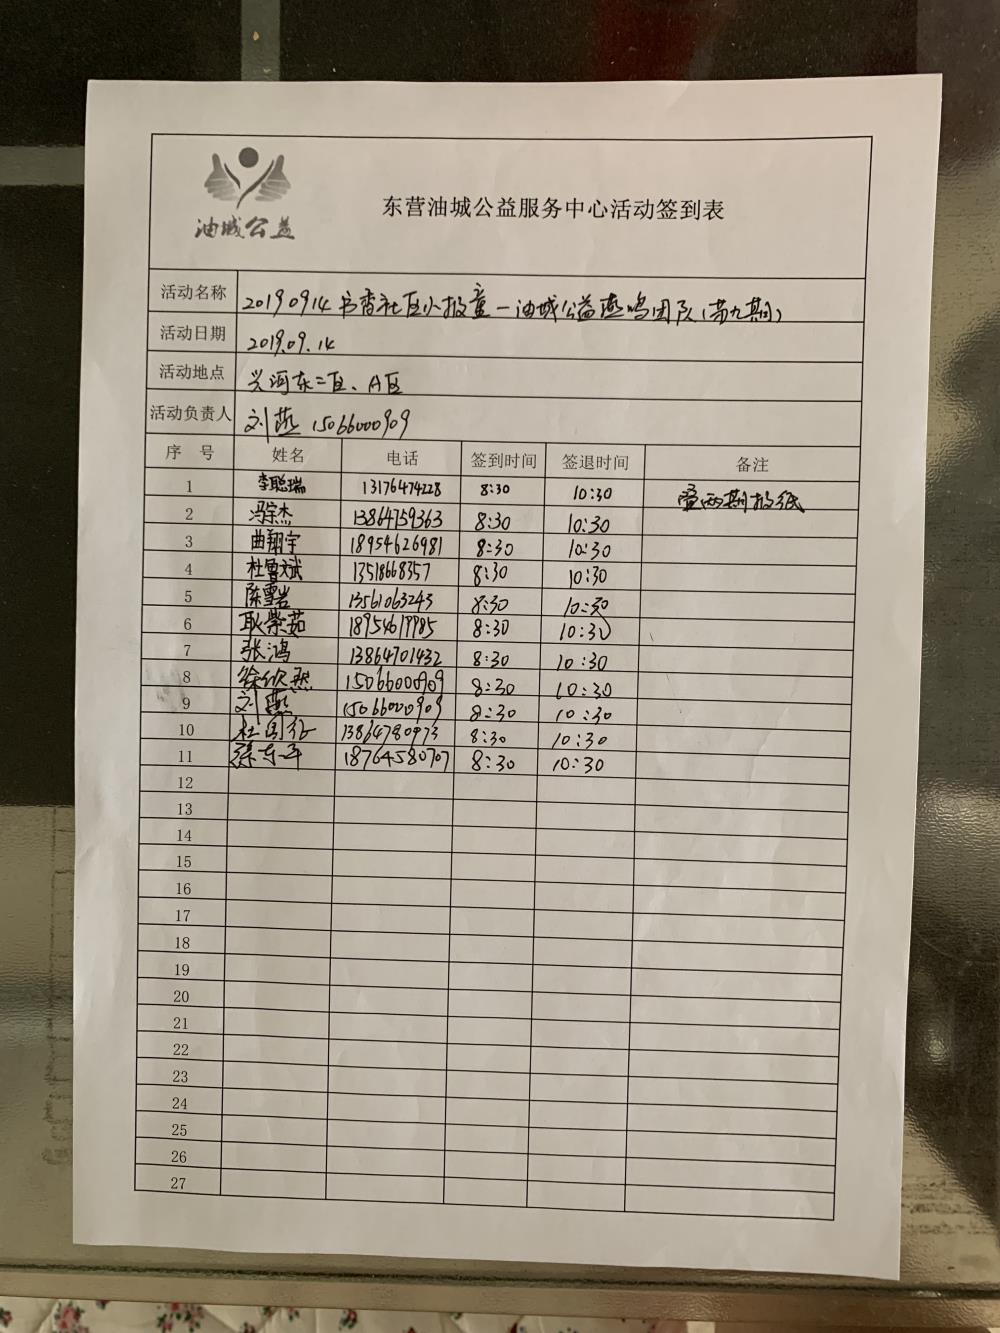 油城公益
东营油城公益服务中心活动签到表
活动名称 20190914书香社区小报童一油城公益燕鸣团队(第九期)
活动日期 2019.09.14
活动地点 兴河东二区、A区
活动负责人 刘燕 15066000909
序 号 姓名 电话 签到时间 签退时间 备注
1 李聪瑞 13176474228 8:30 10:30 两期报纸
2 冯宗杰 13864759363 8:30 10:30
3 曲翔宇 18954626981 8:30 10:30
4 杜鲁斌 13518668357 8:30 10:30
5 陈雪岩 13561063243 8:30 10:30
6 耿紫茹 8:30 10:30
7 张鸿 13864701432 8:30 10:30
8 徐欣然 15066000909 8:30 10:30
9 刘燕 15066000909 8:30 10:30
10 杜 8:30 10:30
11 东平 18764580707 8:30 10:30
12
13
14
15
16
17
18
19
20
21
22
23
24
25
26
27